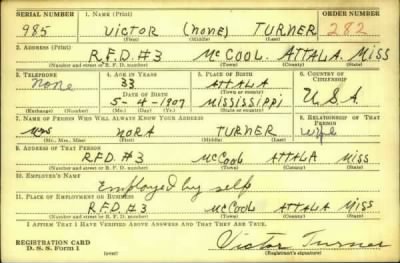 SERIAL NUMBER 1. NAME (Print) ORDER NUMBER
985 VICTOR (NONE) TURNER 282
(First) (Middle) (Last)
2. ADDRESS (Print)
R.F.D. #3 McCOOL ATTALA MISS
(Number and street or R. F. D. number) (Town) (County) (State)
3. TELEPHONE 4. AGE IN YEARS 5. PLACE OF BIRTH 6. COUNTRY OF CITIZENSHIP
None 33 ATTALA
DATE OF BIRTH (Town or county)
5-4-1907 MISSISSIPPI U.S.A.
(Exchange) (Number) (Mo.) (Day) (Yr.) (State or country)
7. NAME OF PERSON WHO WILL ALWAYS KNOW YOUR ADDRESS 8. RELATIONSHIP OF THAT PERSON
MRS NORA TURNER wife
(Mr., Mrs., Miss) (First) (Middle) (Last)
9. ADDRESS OF THAT PERSON
R.F.D. #3 McCOOL ATTALA MISS
(Number and street or R. F. D. number) (Town) (County) (State)
10. EMPLOYER'S NAME
Employed by self
11. PLACE OF EMPLOYMENT OR BUSINESS
R.F.D. #3 McCOOL ATTALA MISS
(Number and street or R. F. D. number) (Town) (County) (State)
I AFFIRM THAT I HAVE VERIFIED ABOVE ANSWERS AND THAT THEY ARE TRUE.
REGISTRATION CARD
D. S. S. Form 1 (over) Victor Turner
(Registrant's signature)